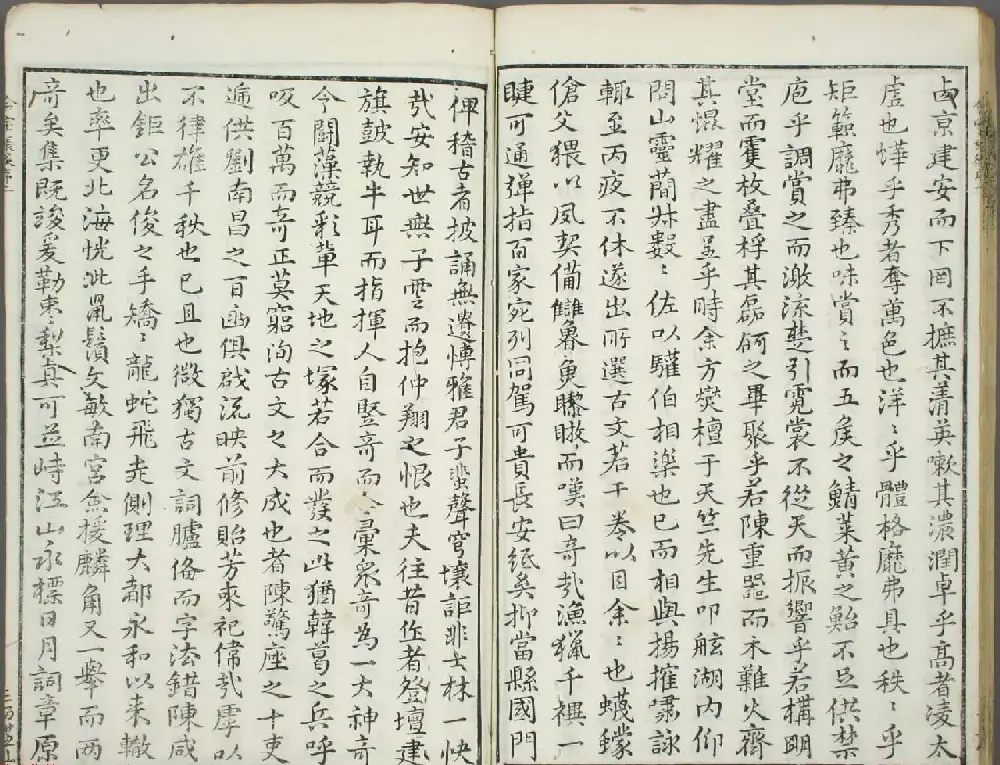 卤京建安而下罔不摭其清英嗽其濃潤卓乎高者凌太
虛也㷸乎秀者奪萬色也洋〻乎體格靡弗具也秩〻乎
矩範靡弗臻也味賞〻而五矦之鯖萊黃之鮐不足供禁
庖乎調賞之而激流㨗引霓裳不從天而振響乎若構明
堂而䨥枚疊桴其磊砢之畢聚乎若陳重器而木難火齊
其焜耀之盡呈乎時余方爇檀于天竺先生叩舷湖內仰
問山靈藺牀數〻佐以驩伯相樂也已而相與揚搉嘯詠
輒至丙夜不休遂出所選古文若干卷以目余〻也蠛蠓
傖父猥以夙契俻讎魯臾矇瞍而嘆曰奇哉漁獵千禩一
睫可通彈指百家宛列同駕可貴長安紙矣抑當縣國門
俾稽古者披誦無遺慱雅君子蜚聲穹壤詎非士林一快
㢤安知世無子雲而抱仲翔之恨也夫往昔作者登壇建
旗鼓執牛耳而指揮人自竪奇而今彙衆奇為一大神奇
今闘藻競彩輩天地之塚若合而發之此猶韓葛之兵呼
吸百萬而奇正莫窮洵古文之大成也者陳驚座之十吏
遞供劉南昌之百凾俱啟流映前修貽芳来祀偉哉虖以
不律雄千秩也已且也微獨古文詞臚俻而字法錯陳咸
出鉅公名俊之手矯〻龍蛇飛走側理大都永和以来轍
也率更北海恍泚鼠鬚文敏南宮𠑽援麟角又一舉而兩
奇矣集既竣爰勒棗梨真可並峙江山永標日月詞章原